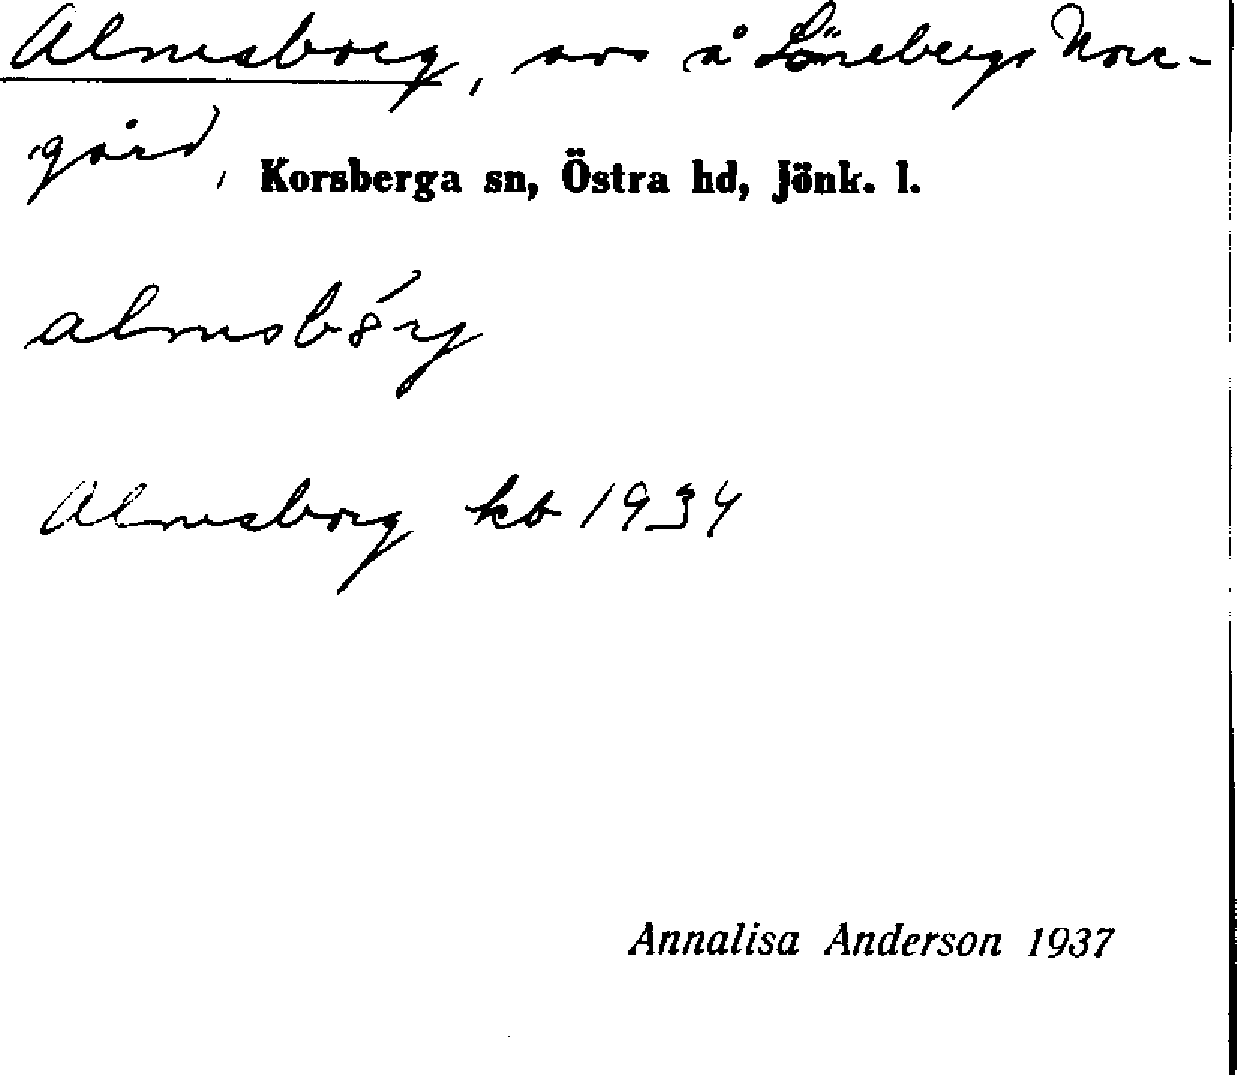 Almsborg, avs å Lönebergs Norr-
gård, Korsberga sn, Östra hd, Jönk. l.
almsbórg
Almsborg kb 1934
Annalisa Anderson 1937